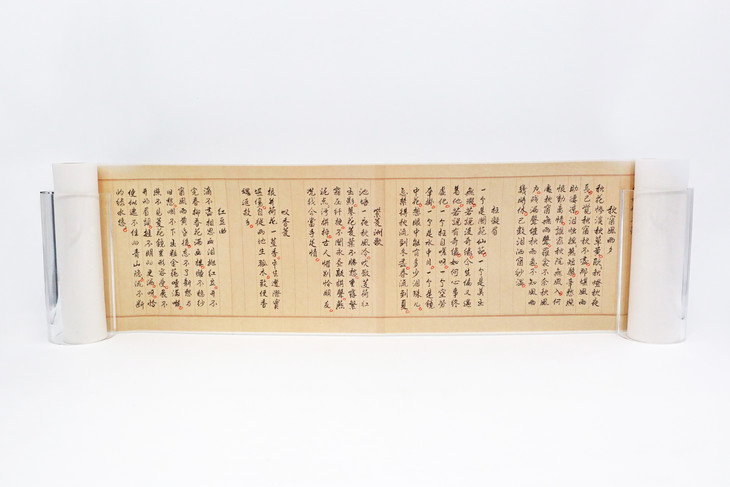 秋窗風雨夕
秋花慘淡秋草黃耿耿秋燈秋夜
長已覺秋窗秋不盡那堪風雨
助淒涼淚燭搖搖短檠牽愁照
恨動離情誰家秋院無風入何
處秋窗無雨聲羅衾不奈秋風
力殘漏聲催秋雨急不知風雨
幾時休已教淚灑窗紗濕
枉凝眉
一个是閬苑仙葩一个是美玉
無瑕若說沒奇緣今生偏又遇
著他若說有奇緣如何心事終
虛化一个枉自嗟呀一个空勞
牽掛一个是水中月一个是鏡
中花想眼中能有多少淚珠兒
怎禁得秋流到冬春流到夏
紫菱洲歌
池塘一夜秋風冷吹散芰荷紅
玉影蓼花菱葉不勝悲重露繁
霜壓纖梗不聞永晝敲棋聲燕
泥點點污棋枰古人惜別憐朋友
況我今當手足情
吟香菱
根並荷花一莖香平生遭際實
堪傷自從兩地生孤木致使香
魂返故鄉
紅豆曲
滴不盡相思血淚拋紅豆開不
完春柳春花滿畫樓睡不穩紗
窗風雨黃昏後忘不了新愁與
舊愁咽不下玉粒金蒓噎滿喉
照不見菱花鏡里形容瘦展不
開的眉頭捱不明的更漏呀恰
便似遮不住的青山隱隱流不斷
的綠水悠悠